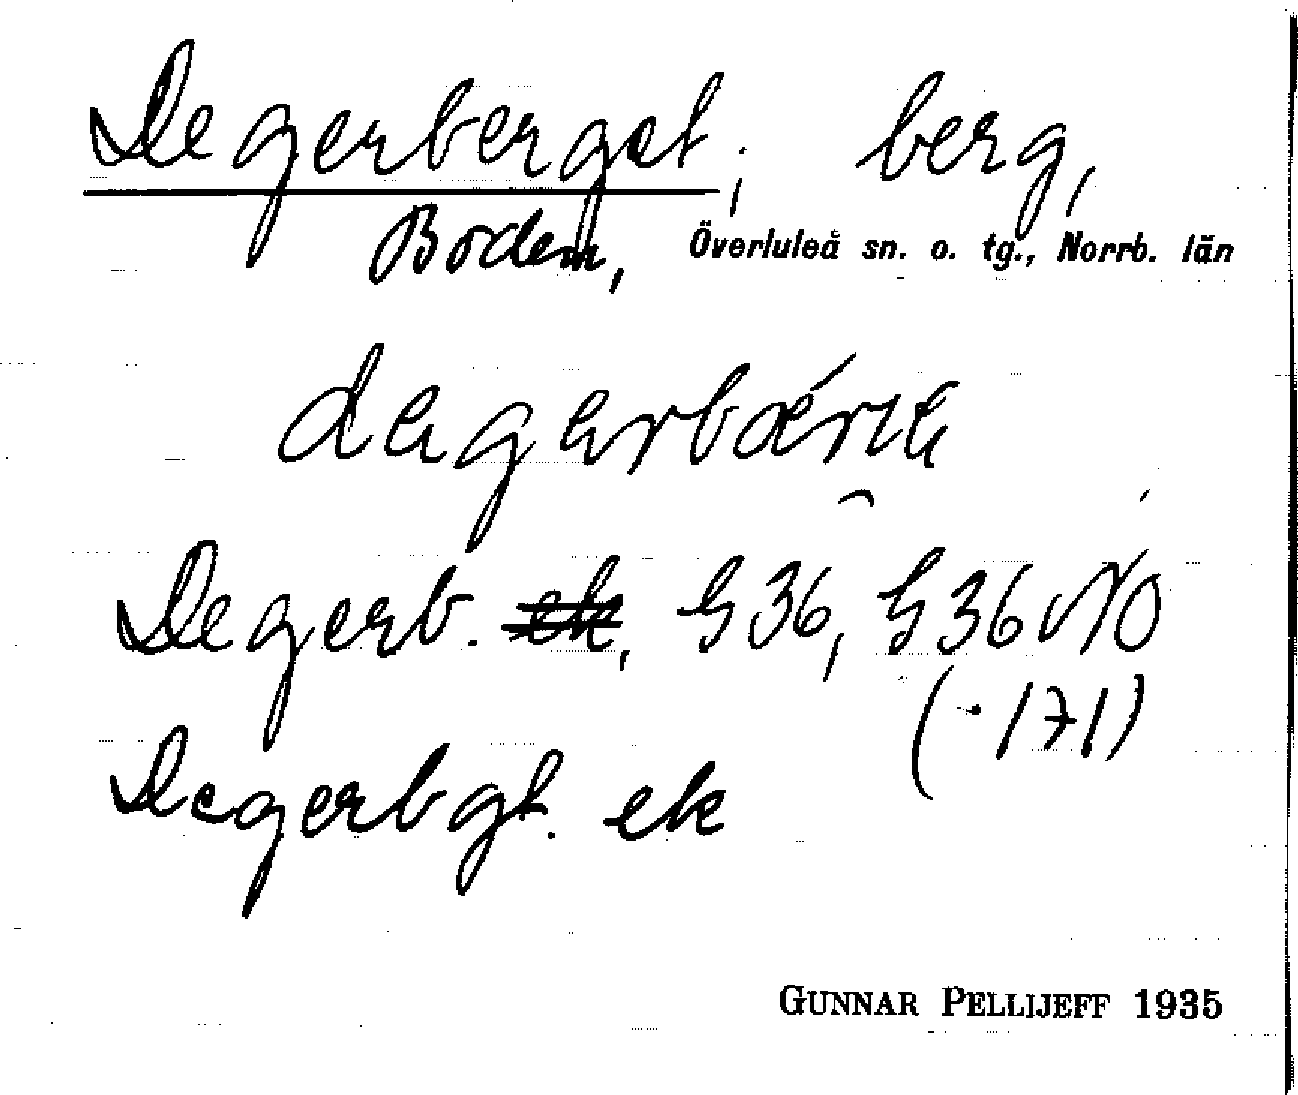 Degerberget; berg,
Boden, Överluleå sn. o. tg., Norrb. län
Degerb. ~~ek~~, G 36, G 36 NO
(·171)
Degerbgt. ek
GUNNAR PELLIJEFF 1935